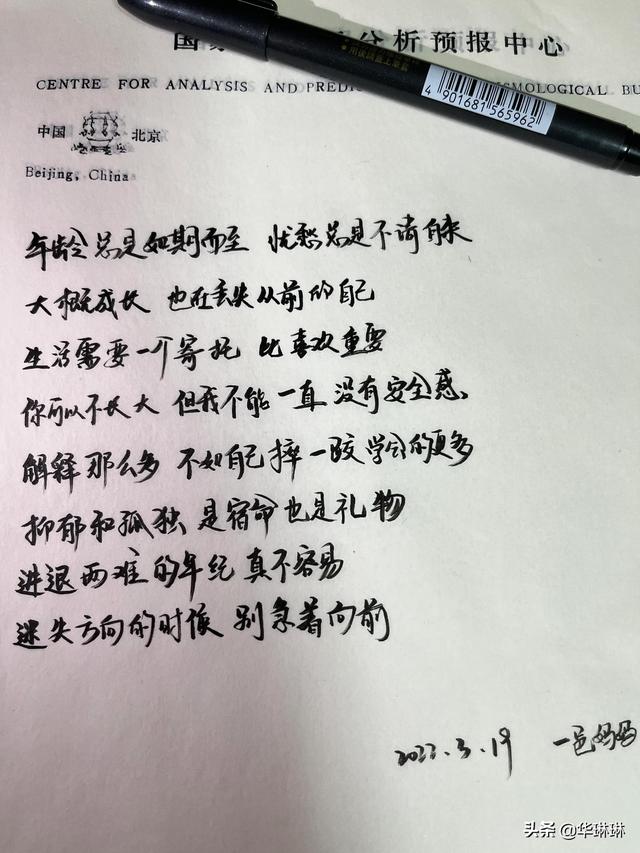 国家 分析预报中心
CENTRE FOR ANALYSIS AND PREDIC SMOLOGICAL BU
4 901681 565962
中国 北京
Beijing, China
年龄总是如期而至 忧愁总是不请自来
大概成长 也在丢失从前的自己
生活需要一个寄托 比喜欢重要
你可以不长大 但我不能一直没有安全感、
解释那么多 不如自己摔一跤学会的更多
抑郁和孤独 是宿命也是礼物
进退两难的年纪 真不容易
迷失方向的时候 别急着向前
2022.3.19 一邑妈妈
头条 @华琳琳